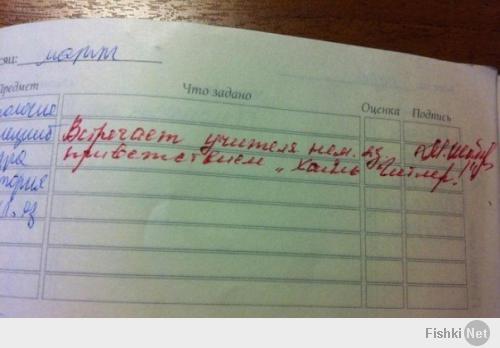 сяц: март
Предмет Что задано Оценка Подпись
ология
Встречает учителя нем. яз
приветствием „Хайль Гитлер!"
тория
яз
Fishki Net